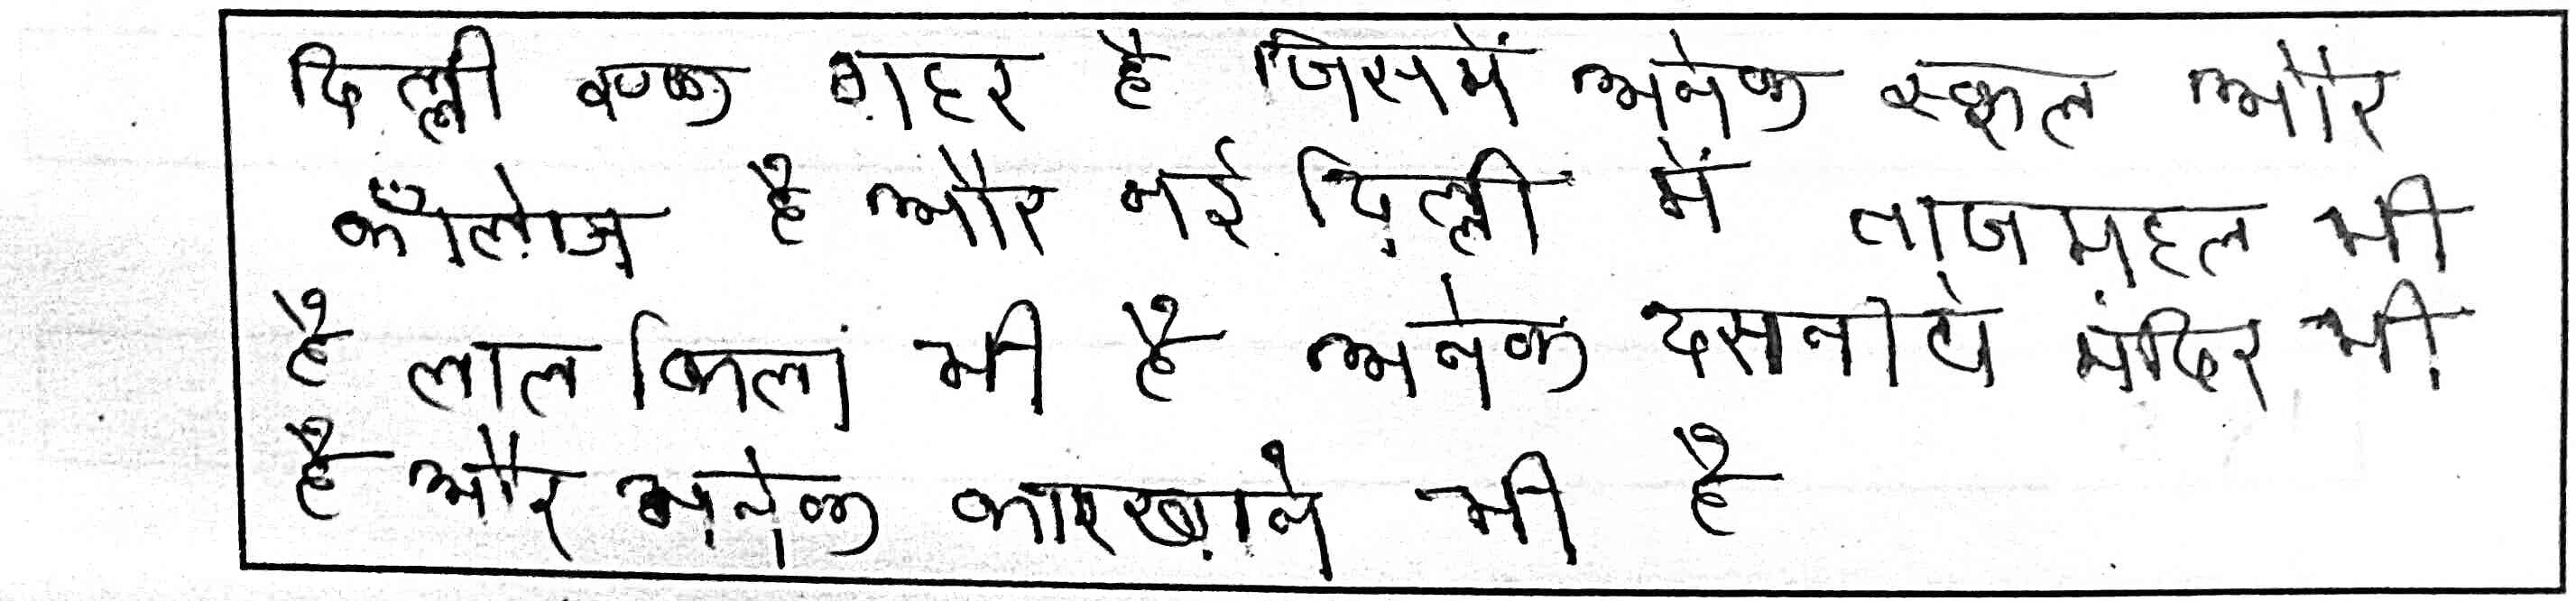 दिल्ली एक शहर है जिसमें अनेक स्कूल और
कॉलेज है और नई दिल्ली में ताजमहल भी
है लाल किला भी है अनेक दसनीये मंदिर भी
है और अनेक कारखाने भी है